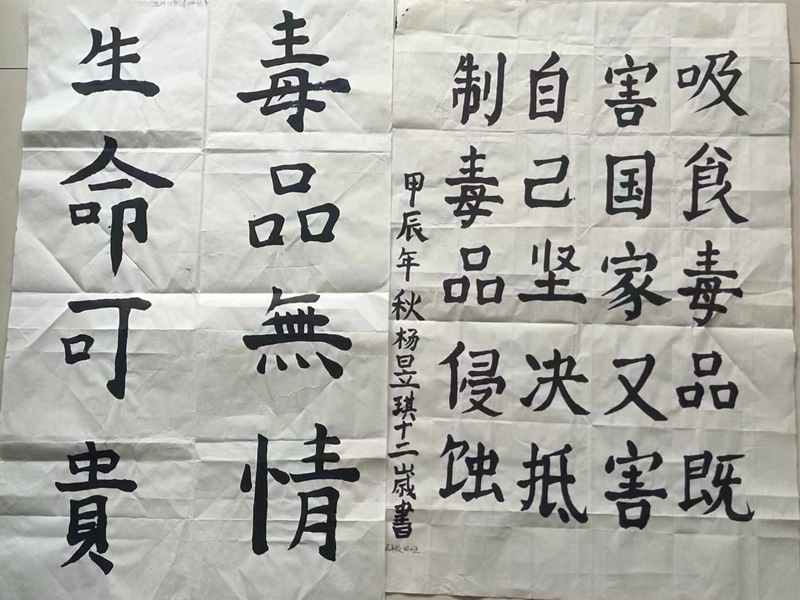 吸食毒品既
害国家又害
自己坚决抵
制毒品侵蚀
甲辰年秋杨昱琪十二岁書
毒品無情
生命可貴